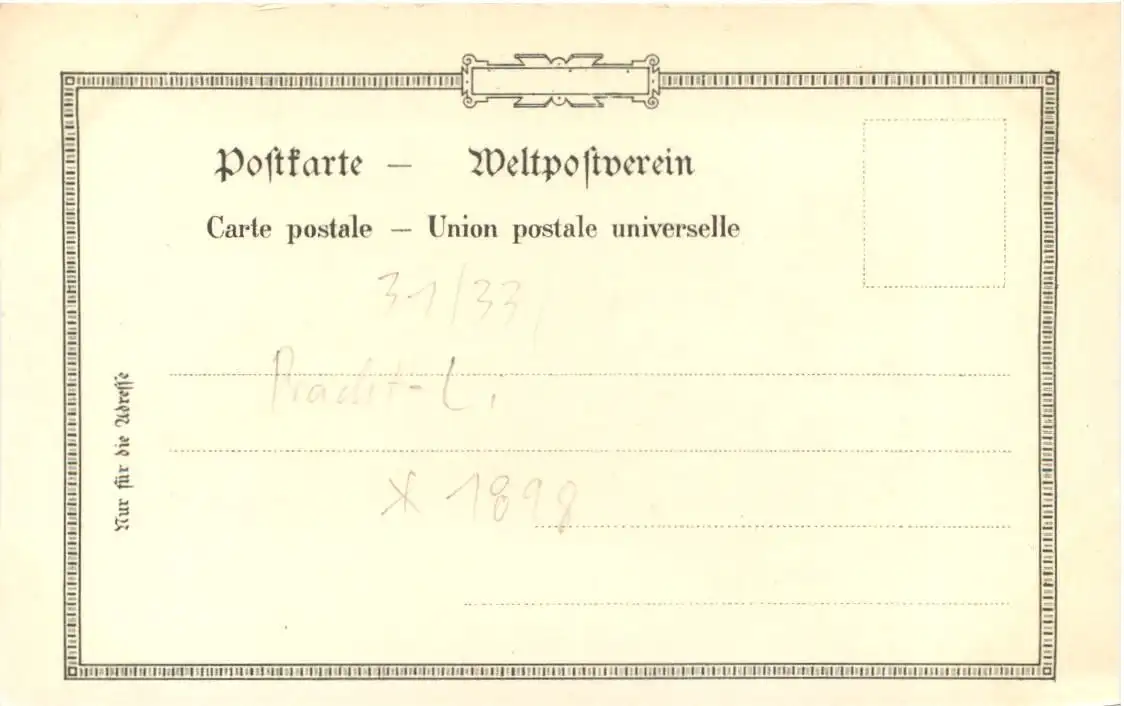 Postkarte — Weltpostverein
Carte postale — Union postale universelle
31/33
Pracht-L.
* 1898
Nur für die Adresse